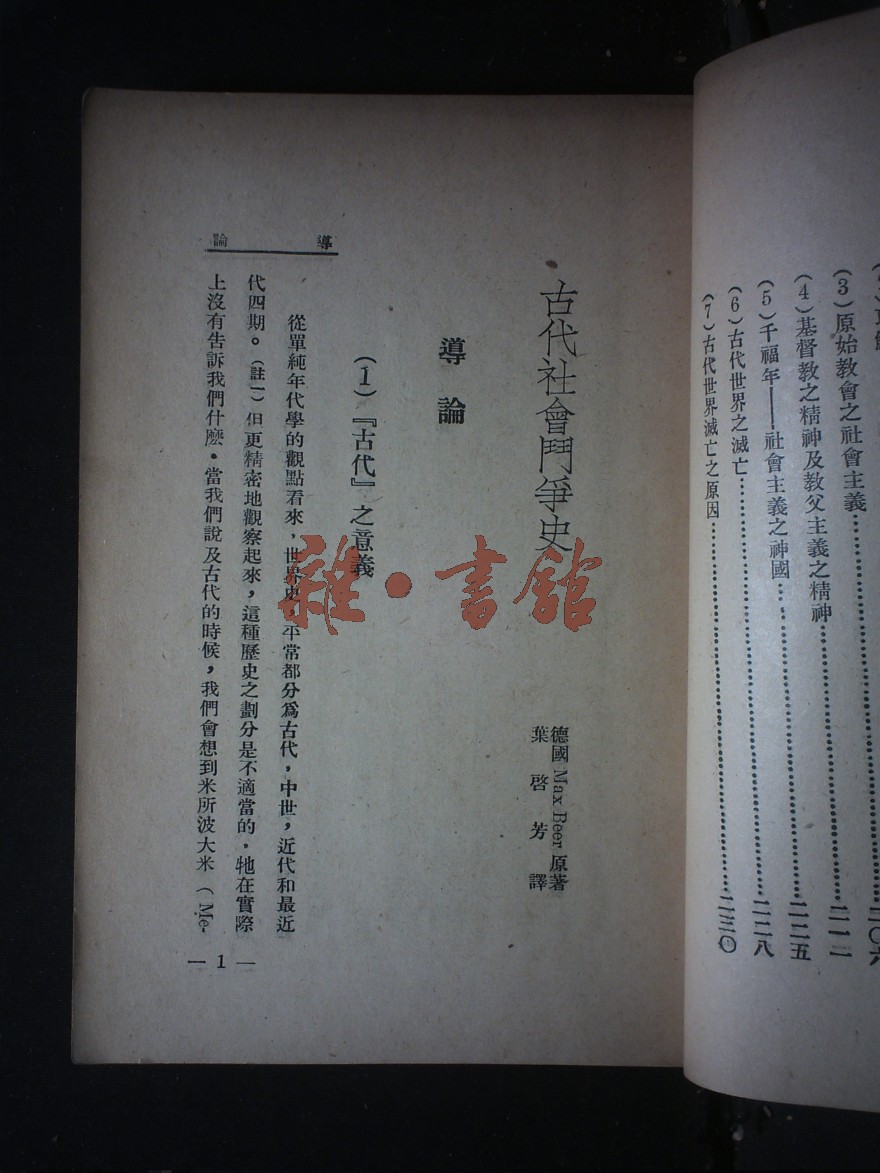 (3)原始教會之社會主義…………二一二
(4)基督教之精神及教父主義之精神…………二二五
(5)千福年——社會主義之神國…………二二八
(6)古代世界之滅亡…………
(7)古代世界滅亡之原因…………二三〇
古代社會鬥爭史
德國 Max Beer 原著
葉啓芳 譯
導論
(1)『古代』之意義
從單純年代學的觀點看來,世界史,平常都分爲古代,中世,近代和最近
代四期。(註一)但更精密地觀察起來,這種歷史之劃分是不適當的,牠在實際
上沒有告訴我們什麽。當我們說及古代的時候,我們會想到米所波大米(Me-
導論
— 1 —
雜·書館